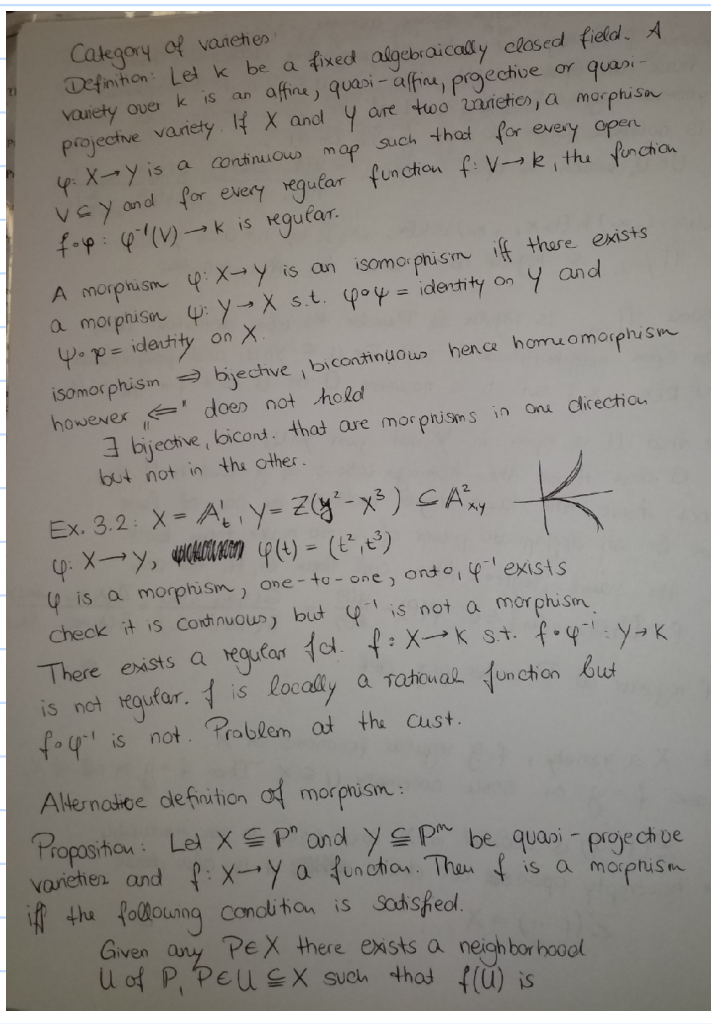 Category of varieties
Definition: Let k be a fixed algebraically closed field. A
variety over k is an affine, quasi-affine, projective or quasi-
projective variety. If X and Y are two varieties, a morphism
φ: X→Y is a continuous map such that for every open
V⊆Y and for every regular function f: V→k, the function
f∘φ: φ⁻¹(V)→k is regular.
A morphism φ: X→Y is an isomorphism iff there exists
a morphism ψ: Y→X s.t. φ∘ψ = identity on Y and
ψ∘φ = identity on X.
isomorphism ⇒ bijective, bicontinuous hence homeomorphism
however "⇐" does not hold
∃ bijective, bicont. that are morphisms in one direction
but not in the other.
Ex. 3.2: X = A¹_t, Y = Z(y²-x³) ⊆ A²_x,y
φ: X→Y, φ(t) = (t², t³)
φ is a morphism, one-to-one, onto, φ⁻¹ exists
check it is continuous, but φ⁻¹ is not a morphism.
There exists a regular fct. f: X→k s.t. f∘φ⁻¹: Y→k
is not regular. f is locally a rational function but
f∘φ⁻¹ is not. Problem at the cust.
Alternative definition of morphism:
Proposition: Let X ⊆ Pⁿ and Y ⊆ Pᵐ be quasi-projective
varieties and f: X→Y a function. Then f is a morphism
iff the following condition is satisfied.
Given any P∈X there exists a neighborhood
U of P, P∈U⊆X such that f(U) is